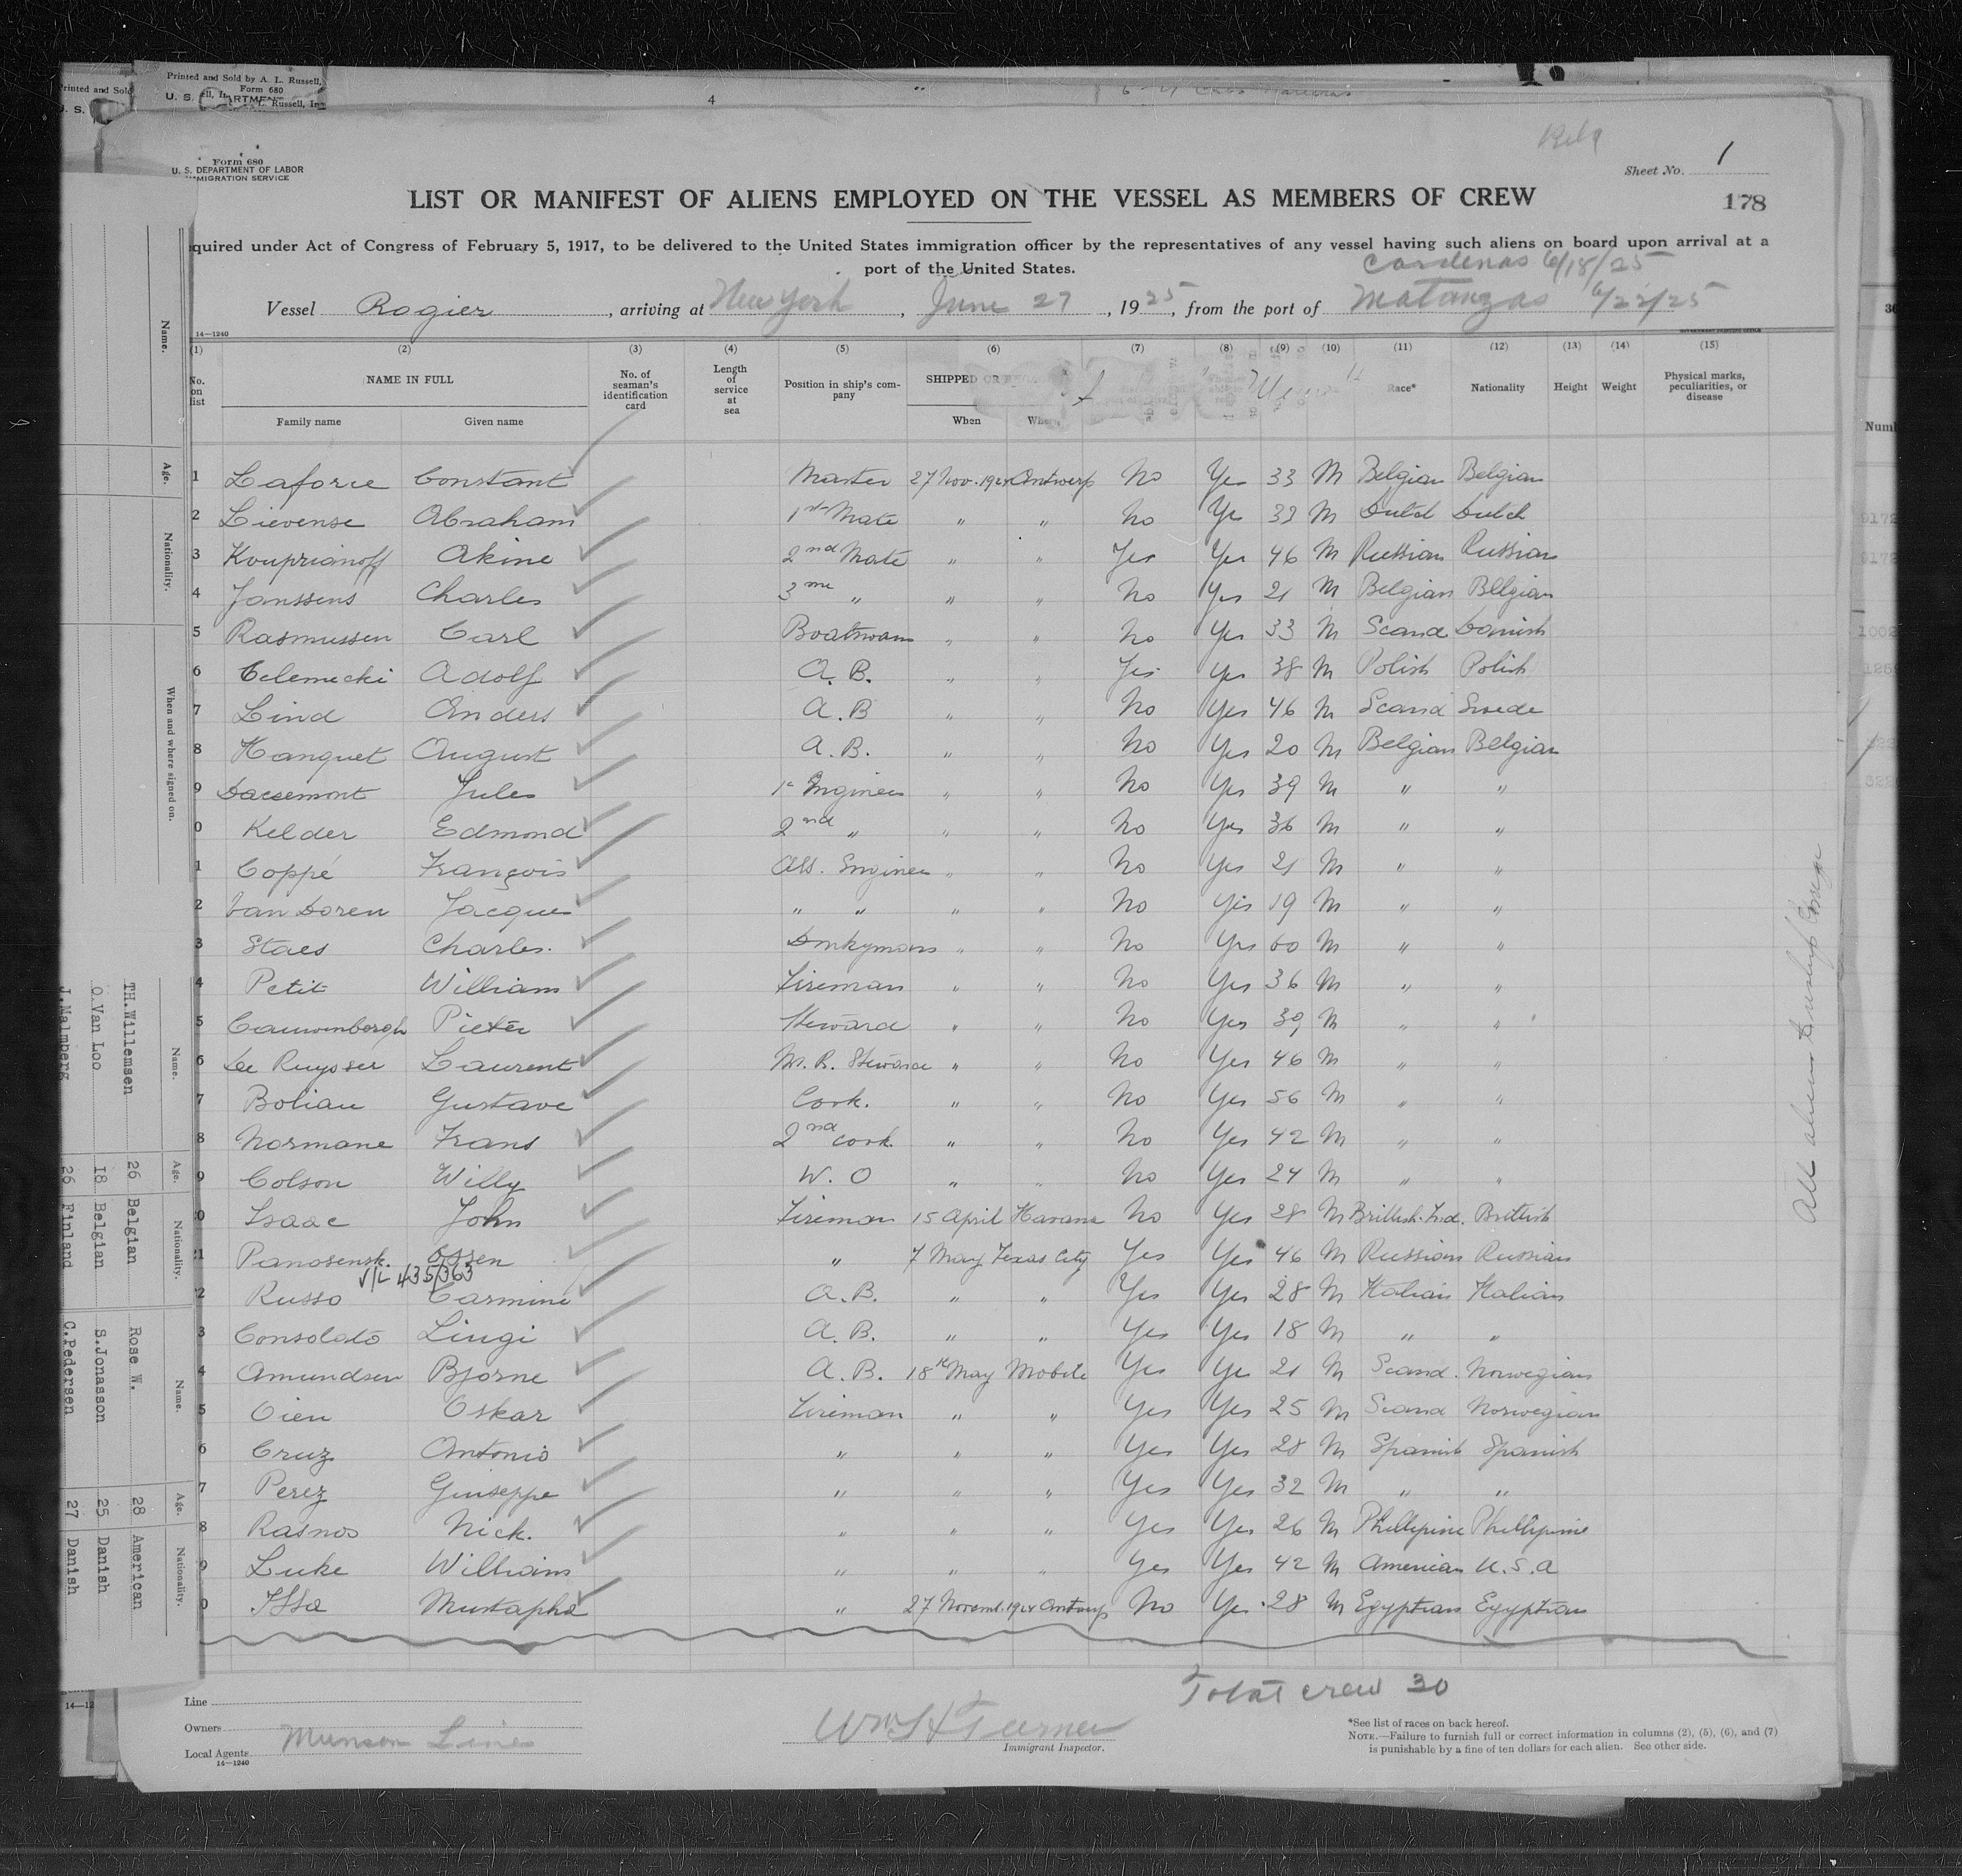 Printed and Sold by A. L. Russell,
Form 680
Printed and Sold
U. S.
L. Russell, In
4
Form 680
U. S. DEPARTMENT OF LABOR
MIGRATION SERVICE
Sheet No. 1
LIST OR MANIFEST OF ALIENS EMPLOYED ON THE VESSEL AS MEMBERS OF CREW
178
quired under Act of Congress of February 5, 1917, to be delivered to the United States immigration officer by the representatives of any vessel having such aliens on board upon arrival at a
port of the United States.
Cardenas 6/18/25
Vessel Rogier, arriving at New York, June 27, 1925, from the port of Matanzas 6/22/25
14—1240
(1) (2) (3) (4) (5) (6) (7) (8) (9) (10) (11) (12) (13) (14) (15)
No. on list NAME IN FULL No. of seaman's identification card Length of service at sea Position in ship's company SHIPPED OR Race* Nationality Height Weight Physical marks, peculiarities, or disease
Family name Given name When Where
1 Laforce Constant Master 27 Nov. 1924 Antwerp No Yes 33 M Belgian Belgian
2 Lievense Abraham 1st Mate " " No Ye 33 M Dutch Dutch
3 Kouprianoff Akine 2nd Mate " " Yes Yes 46 M Russian Russian
4 Janssens Charles 3me " " " No Yes 21 M Belgian Belgian
5 Rasmussen Carl Boatswam " " No Yes 33 M Scand Danish
6 Celemecki Adolf A. B. " " Yes Yes 38 M Polish Polish
7 Lind Anders A. B " " No Yes 46 M Scand Swede
8 Hanquet August A. B. " " No Yes 20 M Belgian Belgian
9 Dacsemont Jules 1e Enginee " " No Yes 39 M " "
0 Kelder Edmond 2nd " " " No Yes 36 M " "
1 Coppé François Ass. Enginee " " No Yes 21 M " "
2 Van Doren Jacques " " " " No Yes 19 M " "
3 Staes Charles. Donkymans " " No Yes 60 M " "
4 Petit William Fireman " " No Yes 36 M " "
5 Cauwenbergh Pieter Steward " " No Yes 39 M " "
6 De Ruysser Laurent M. R. Steward " " No Yes 46 M " "
7 Bolian Gustave Cook. " " No Yes 56 M " "
8 Normane Frans 2nd cook " " No Yes 42 M " "
9 Colson Willy W. O " " No Yes 24 M " "
0 Isaac John Fireman 15 April Havana No Yes 28 M British. Ind. British
1 Panosensk. Ossen " 7 May Texas City Yes Yes 46 M Russian Russian
V/L 435/363
2 Russo Carmine A. B. " " Yes Yes 28 M Italian Italian
3 Consolato Liugi A. B. " " Yes Yes 18 M " "
4 Amundsen Bjorne A. B. 18th May Mobile Yes Ye 21 M Scand. Norwegian
5 Oien Oskar Fireman " " Yes Yes 25 M Scand Norwegian
6 Cruz Antonio " " " Yes Yes 28 M Spanish Spanish
7 Perez Giuseppe " " " Yes Yes 32 M " "
8 Rasnos Nick. " " " Yes Yes 26 M Phillipine Phillipine
9 Luke William " " " Yes Yes 42 M American U. S. A
0 Issa Mustapha " 27 Novemb. 1924 Antwerp No Yes 28 M Egyptian Egyptian
Total crew 30
Line
Owners
Local Agents Munson Line
14—1240
Wm H Turner
Immigrant Inspector.
*See list of races on back hereof.
NOTE.—Failure to furnish full or correct information in columns (2), (5), (6), and (7)
is punishable by a fine of ten dollars for each alien. See other side.
Name.
Age.
Nationality.
When and where signed on.
Name. Age. Nationality. Name. Age. Nationality.
TH.Willemsen 26 Belgian Rose W. 28 American
O.Van Loo 18 Belgian S.Jonasson 25 Danish
J.Malmberg 26 Finland C.Pedersen 27 Danish
14—12